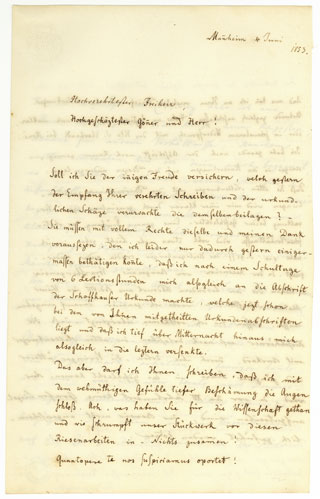 Mannheim 4 Juni
1853.
Hochverehrtester Freiherr,
Hochgeschäztester Göner und Herr!
Soll ich Sie der innigen Freude versichern, welch gestern
der Empfang Ihrer verehrten Schreiben und der urkund-
lichen Schäze verursachte die demselben beilagen? –
Sie müssen mit vollem Rechte dieselbe und meinen Dank
voraussezen, den ich leider nur dadurch gestern einiger-
massen bethätigen konte, daß ich nach einem Schultage
von 6 Lectionsstunden mich alsogleich an die Abschrift
der Schaffhauser Urkunde machte, welche jezt schon
bei den von Ihnen mitgetheilten Urkundenabschriften
liegt und daß ich tief über Mitternacht hinaus mich
alsogleich in die leztern versenkte.
Das aber darf ich Ihnen schreiben, daß ich mit
dem wehmüthigen Gefühle tiefer Beschämung die Augen
schloß. Ach, was haben Sie für die Wissenschaft gethan
und wie schrumpft unser Stückwerk vor diesen
Riesenarbeiten in – Nichts zusamen!
Quantopere te nos suspiciamus oportet!